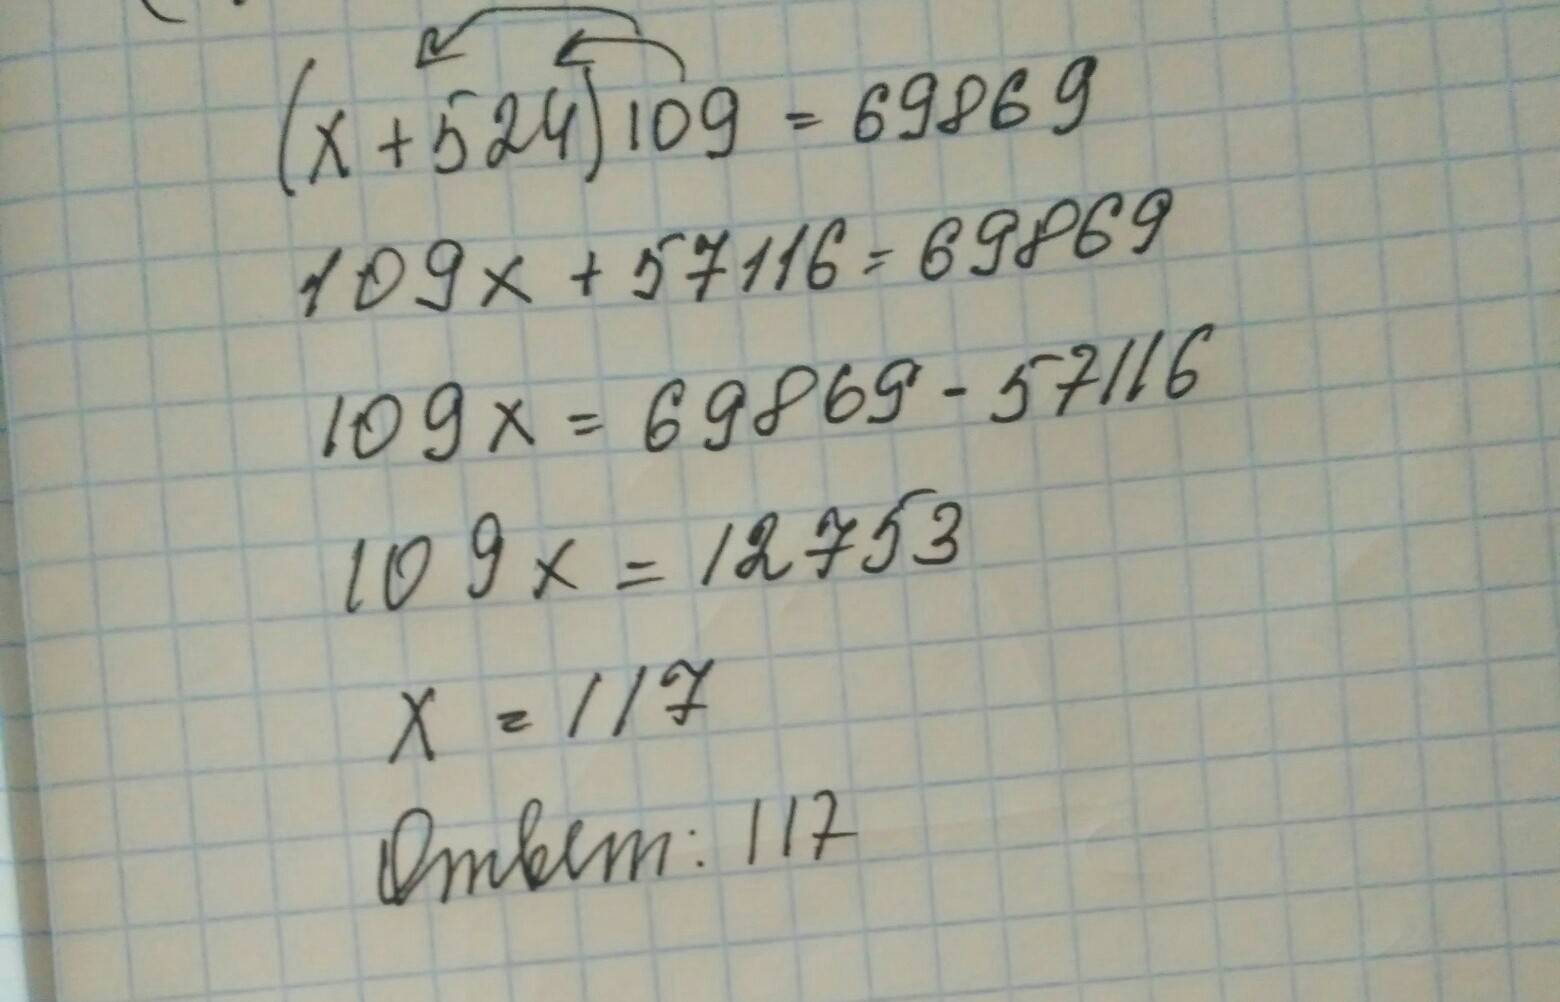 (x+524)109 = 69869
109x + 57116 = 69869
109x = 69869 - 57116
109x = 12753
x = 117
Ответ: 117